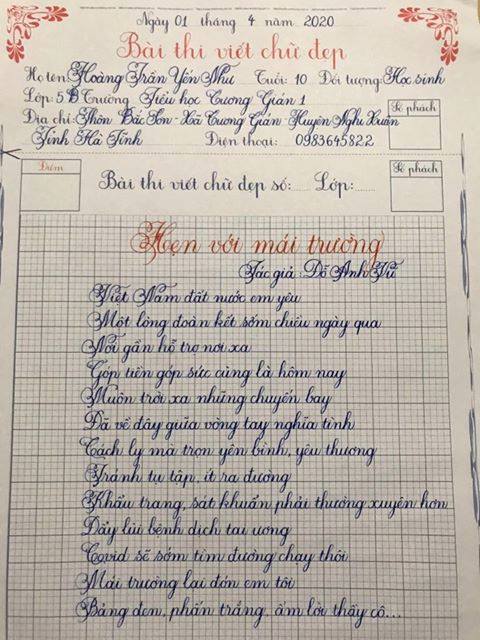 Ngày 01 tháng 4 năm 2020
Bài thi viết chữ đẹp
Họ tên: Hoàng Trần Yến Như Tuổi: 10 Đối tượng: Học sinh
Lớp: 5B Trường Tiểu học Cương Gián 1
Địa chỉ: Thôn Bắc Sơn - Xã Cương Gián Huyện Nghi Xuân
Tỉnh Hà Tĩnh Điện thoại: 0983645822
Số phách
Điểm
Bài thi viết chữ đẹp số: ...... Lớp: ......
Số phách
Hẹn với mái trường
Tác giả: Đỗ Anh Vũ
Việt Nam đất nước em yêu
Một lòng đoàn kết sớm chiều ngày qua
Nơi gần hỗ trợ nơi xa
Góp tiền góp sức cũng là hôm nay
Muôn trời xa những chuyến bay
Đã về đây giữa vòng tay nghĩa tình
Cách ly mà trọn yên bình, yêu thương
Tránh tụ tập, ít ra đường
Khẩu trang, sát khuẩn phải thường xuyên hơn
Đẩy lùi bệnh dịch tai ương
Covid sẽ sớm tìm đường chạy thôi
Mái trường lại đón em tôi
Bảng đen, phấn trắng, ấm lời thầy cô...